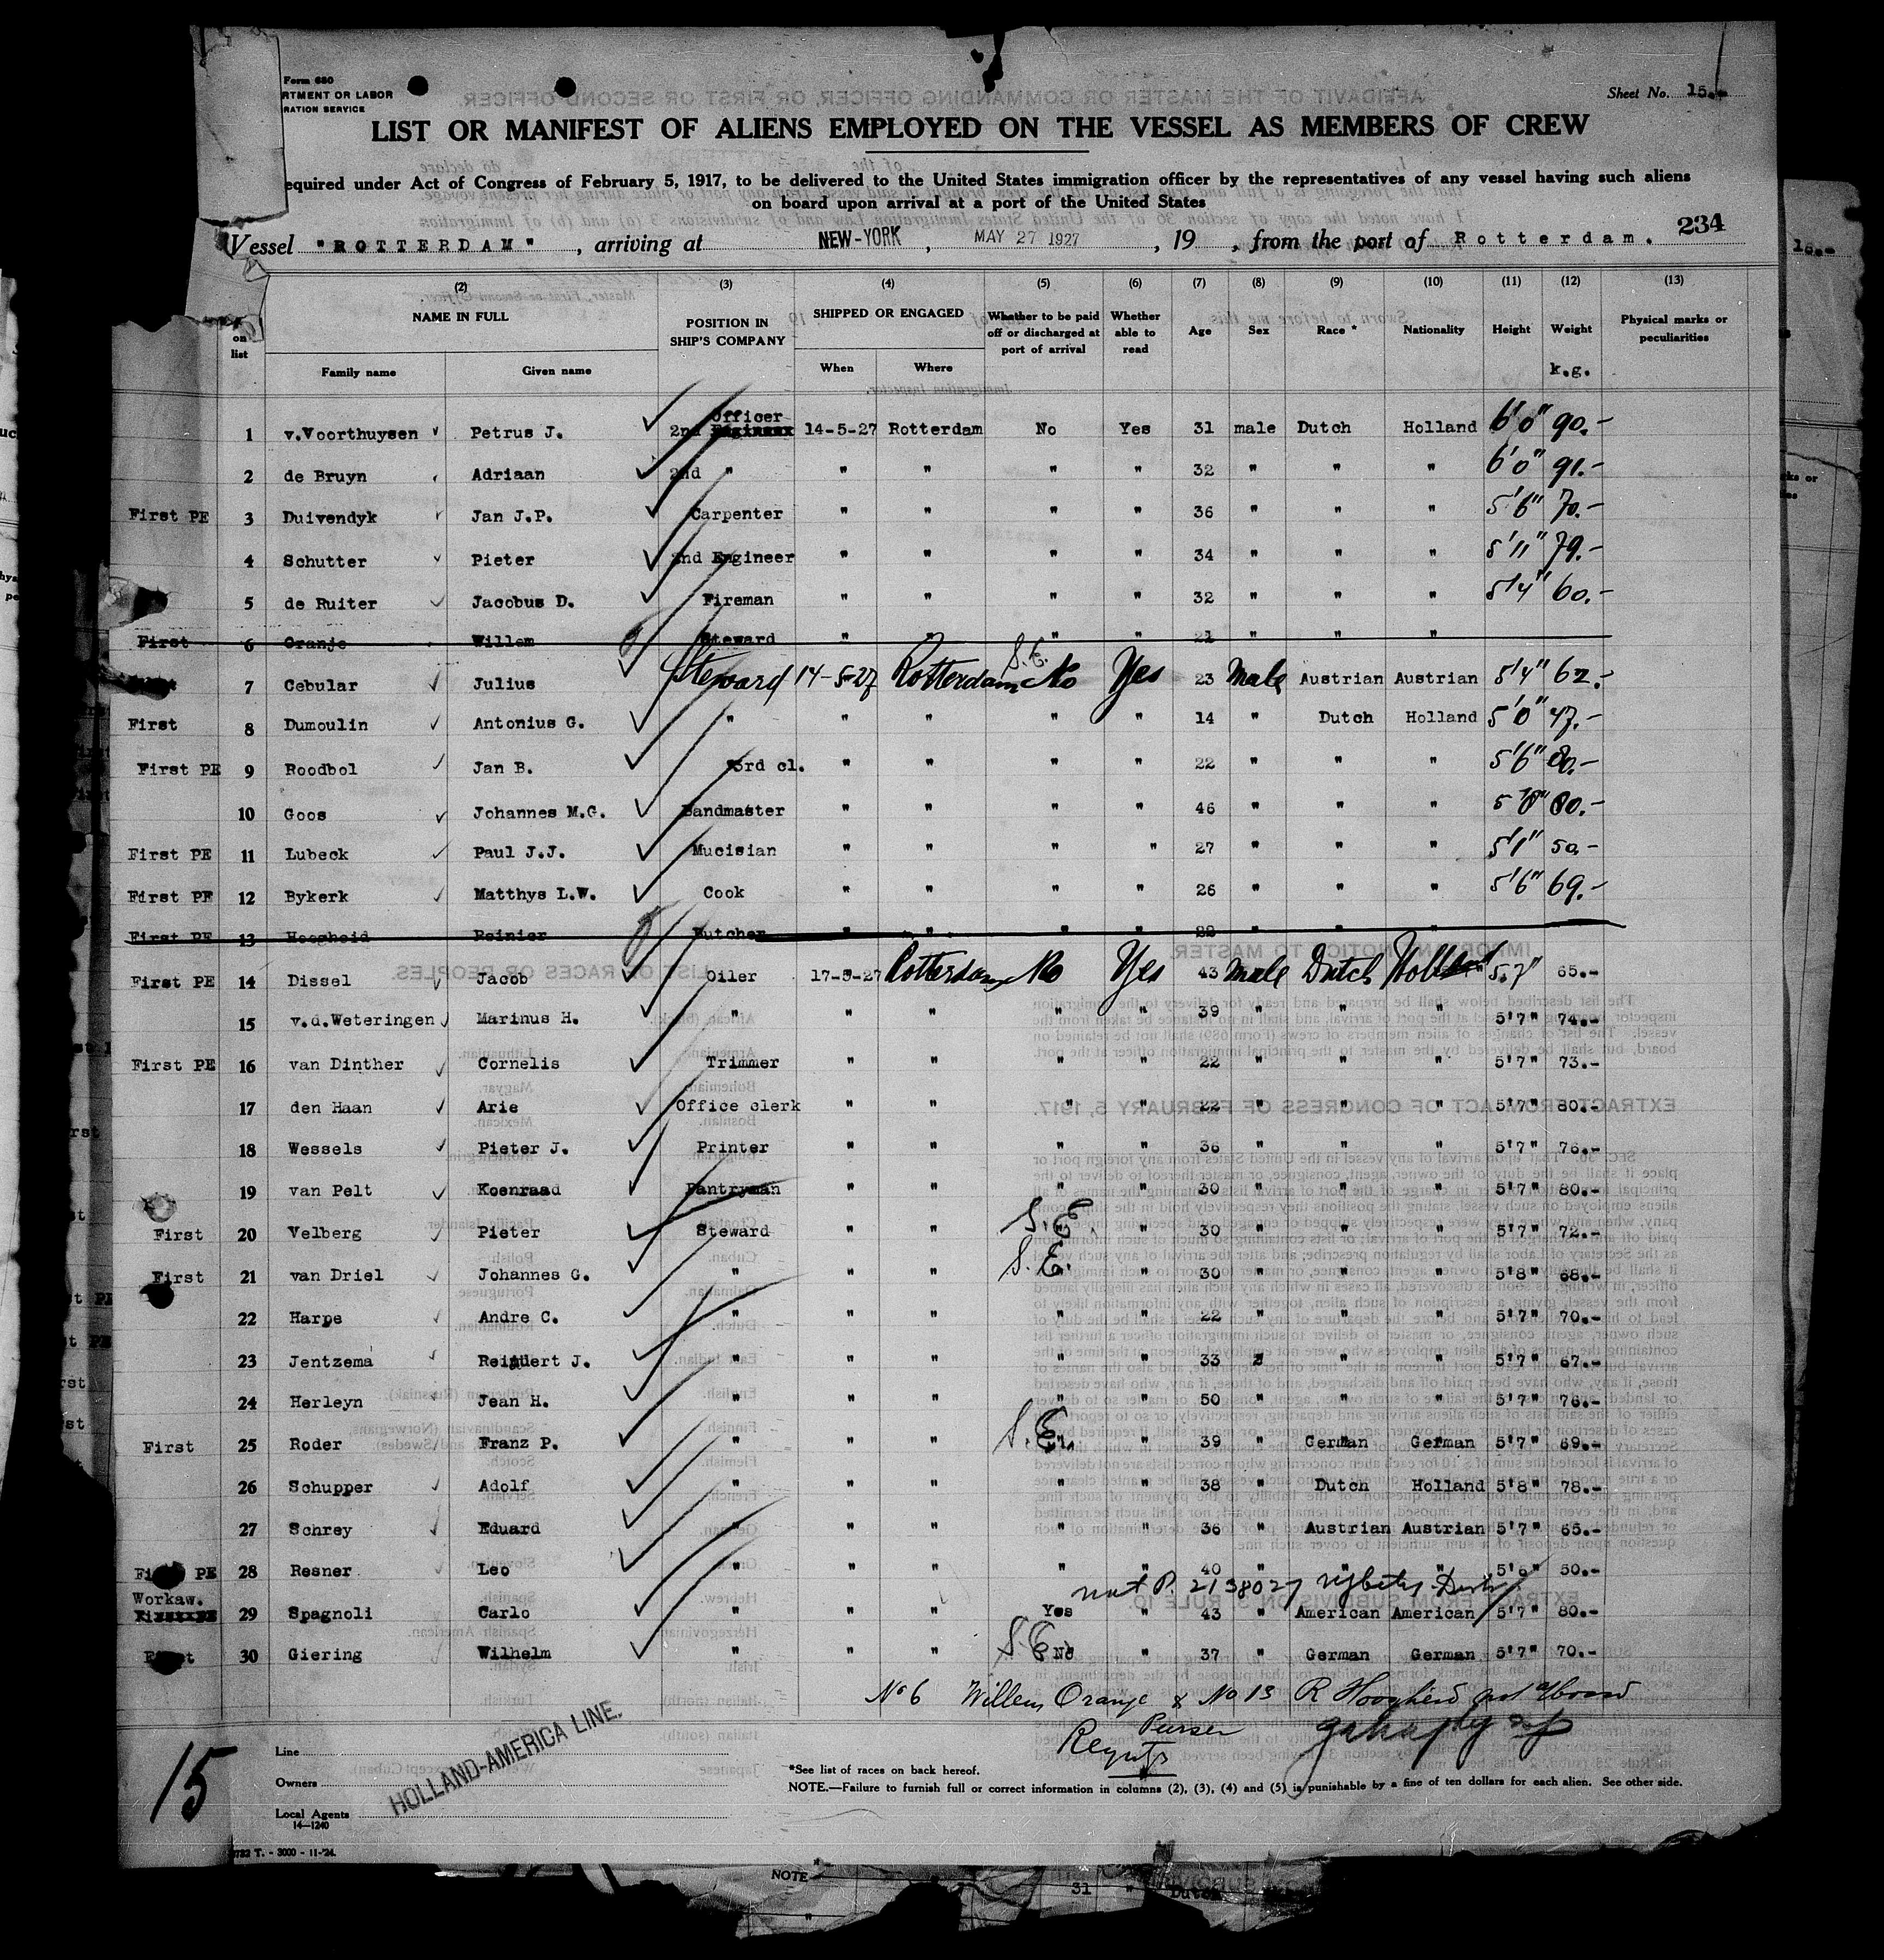 Form 680
RTMENT OR LABOR
RATION SERVICE
Sheet No. 15.
LIST OR MANIFEST OF ALIENS EMPLOYED ON THE VESSEL AS MEMBERS OF CREW
equired under Act of Congress of February 5, 1917, to be delivered to the United States immigration officer by the representatives of any vessel having such aliens
on board upon arrival at a port of the United States
234
Vessel "ROTTERDAM", arriving at NEW-YORK, MAY 27 1927, 19 , from the port of Rotterdam.
(2) (3) (4) (5) (6) (7) (8) (9) (10) (11) (12) (13)
on list NAME IN FULL POSITION IN SHIP'S COMPANY SHIPPED OR ENGAGED Whether to be paid off or discharged at port of arrival Whether able to read Age Sex Race * Nationality Height Weight Physical marks or peculiarities
Family name Given name When Where k.g.
1 v.Voorthuysen Petrus J. 2nd Officer 14-5-27 Rotterdam No Yes 31 male Dutch Holland 6'0" 90.-
2 de Bruyn Adriaan 2nd " " " " " 32 " " " 6'0" 91.-
First PE 3 Duivendyk Jan J.P. Carpenter " " " " 36 " " " 5'6" 70.-
4 Schutter Pieter 2nd Engineer " " " " 34 " " " 5'11" 79.-
5 de Ruiter Jacobus D. Fireman " " " " 32 " " " 5'4" 60.-
First 6 Oranje Willem Steward " " " " 21 " " "
7 Cebular Julius Steward 14-5-27 Rotterdam S.E. No Yes 23 Male Austrian Austrian 5'4" 62.-
First 8 Dumoulin Antonius G. " " " " " 14 " Dutch Holland 5'0" 47.-
First PE 9 Roodbol Jan B. "3rd cl. " " " " 22 " " " 5'6" 80.-
10 Goos Johannes M.G. Bandmaster " " " " 46 " " " 5'8" 80.-
First PE 11 Lubeck Paul J.J. Mucisian " " " " 27 " " " 5'1" 50.-
First PE 12 Bykerk Matthys L.W. Cook " " " " 26 " " " 5'6" 69.-
First PE 13 Hoogheid Reinier Butcher " " " " 22 " " "
First PE 14 Dissel Jacob Oiler 17-5-27 Rotterdam No Yes 43 male Dutch Holland 5.7" 65.-
15 v.d.Weteringen Marinus H. " " " " " 39 " " " 5'7" 74.-
First PE 16 van Dinther Cornelis Trimmer " " " " 22 " " " 5'7" 73.-
17 den Haan Arie Office clerk " " " " 22 " " " 5'7" 80.-
18 Wessels Pieter J. Printer " " " " 36 " " " 5'7" 76.-
19 van Pelt Koenraad Pantryman " " " " 30 " " " 5'7" 80.-
First 20 Velberg Pieter Steward " " S.E. " " 30 " " " 5'7" 72.-
First 21 van Driel Johannes G. " " " S.E. " " 30 " " " 5'8" 68.-
22 Harpe Andre C. " " " " " 22 " " " 5'7" 70.-
23 Jentzema Reindert J. " " " " " 33 " " " 5'7" 67.-
24 Herleyn Jean H. " " " " " 50 " " " 5'7" 76.-
First 25 Roder Franz P. " " " S.E. " " 39 " German German 5'7" 69.-
26 Schupper Adolf " " " " " 38 " Dutch Holland 5'8" 78.-
27 Schrey Eduard " " " " " 36 " Austrian Austrian 5'7" 65.-
First PE 28 Resner Leo " " " " " 40 " " " 5'6" 50.-
nat P. 2138027
Workaw. 29 Spagnoli Carlo " " " Yes " 43 " American American 5'7" 80.-
First 30 Giering Wilhelm " " " S.E. No " 37 " German German 5'7" 70.-
No 6 Willem Oranje & No 13 R Hoogheid not aboard
Purser
15
Line
Owners
Local Agents
14—1240
HOLLAND-AMERICA LINE.
*See list of races on back hereof.
NOTE.—Failure to furnish full or correct information in columns (2), (3), (4) and (5) is punishable by a fine of ten dollars for each alien. See other side.
T. - 3000 - 11-'24.
NOTE
31 " Dutch